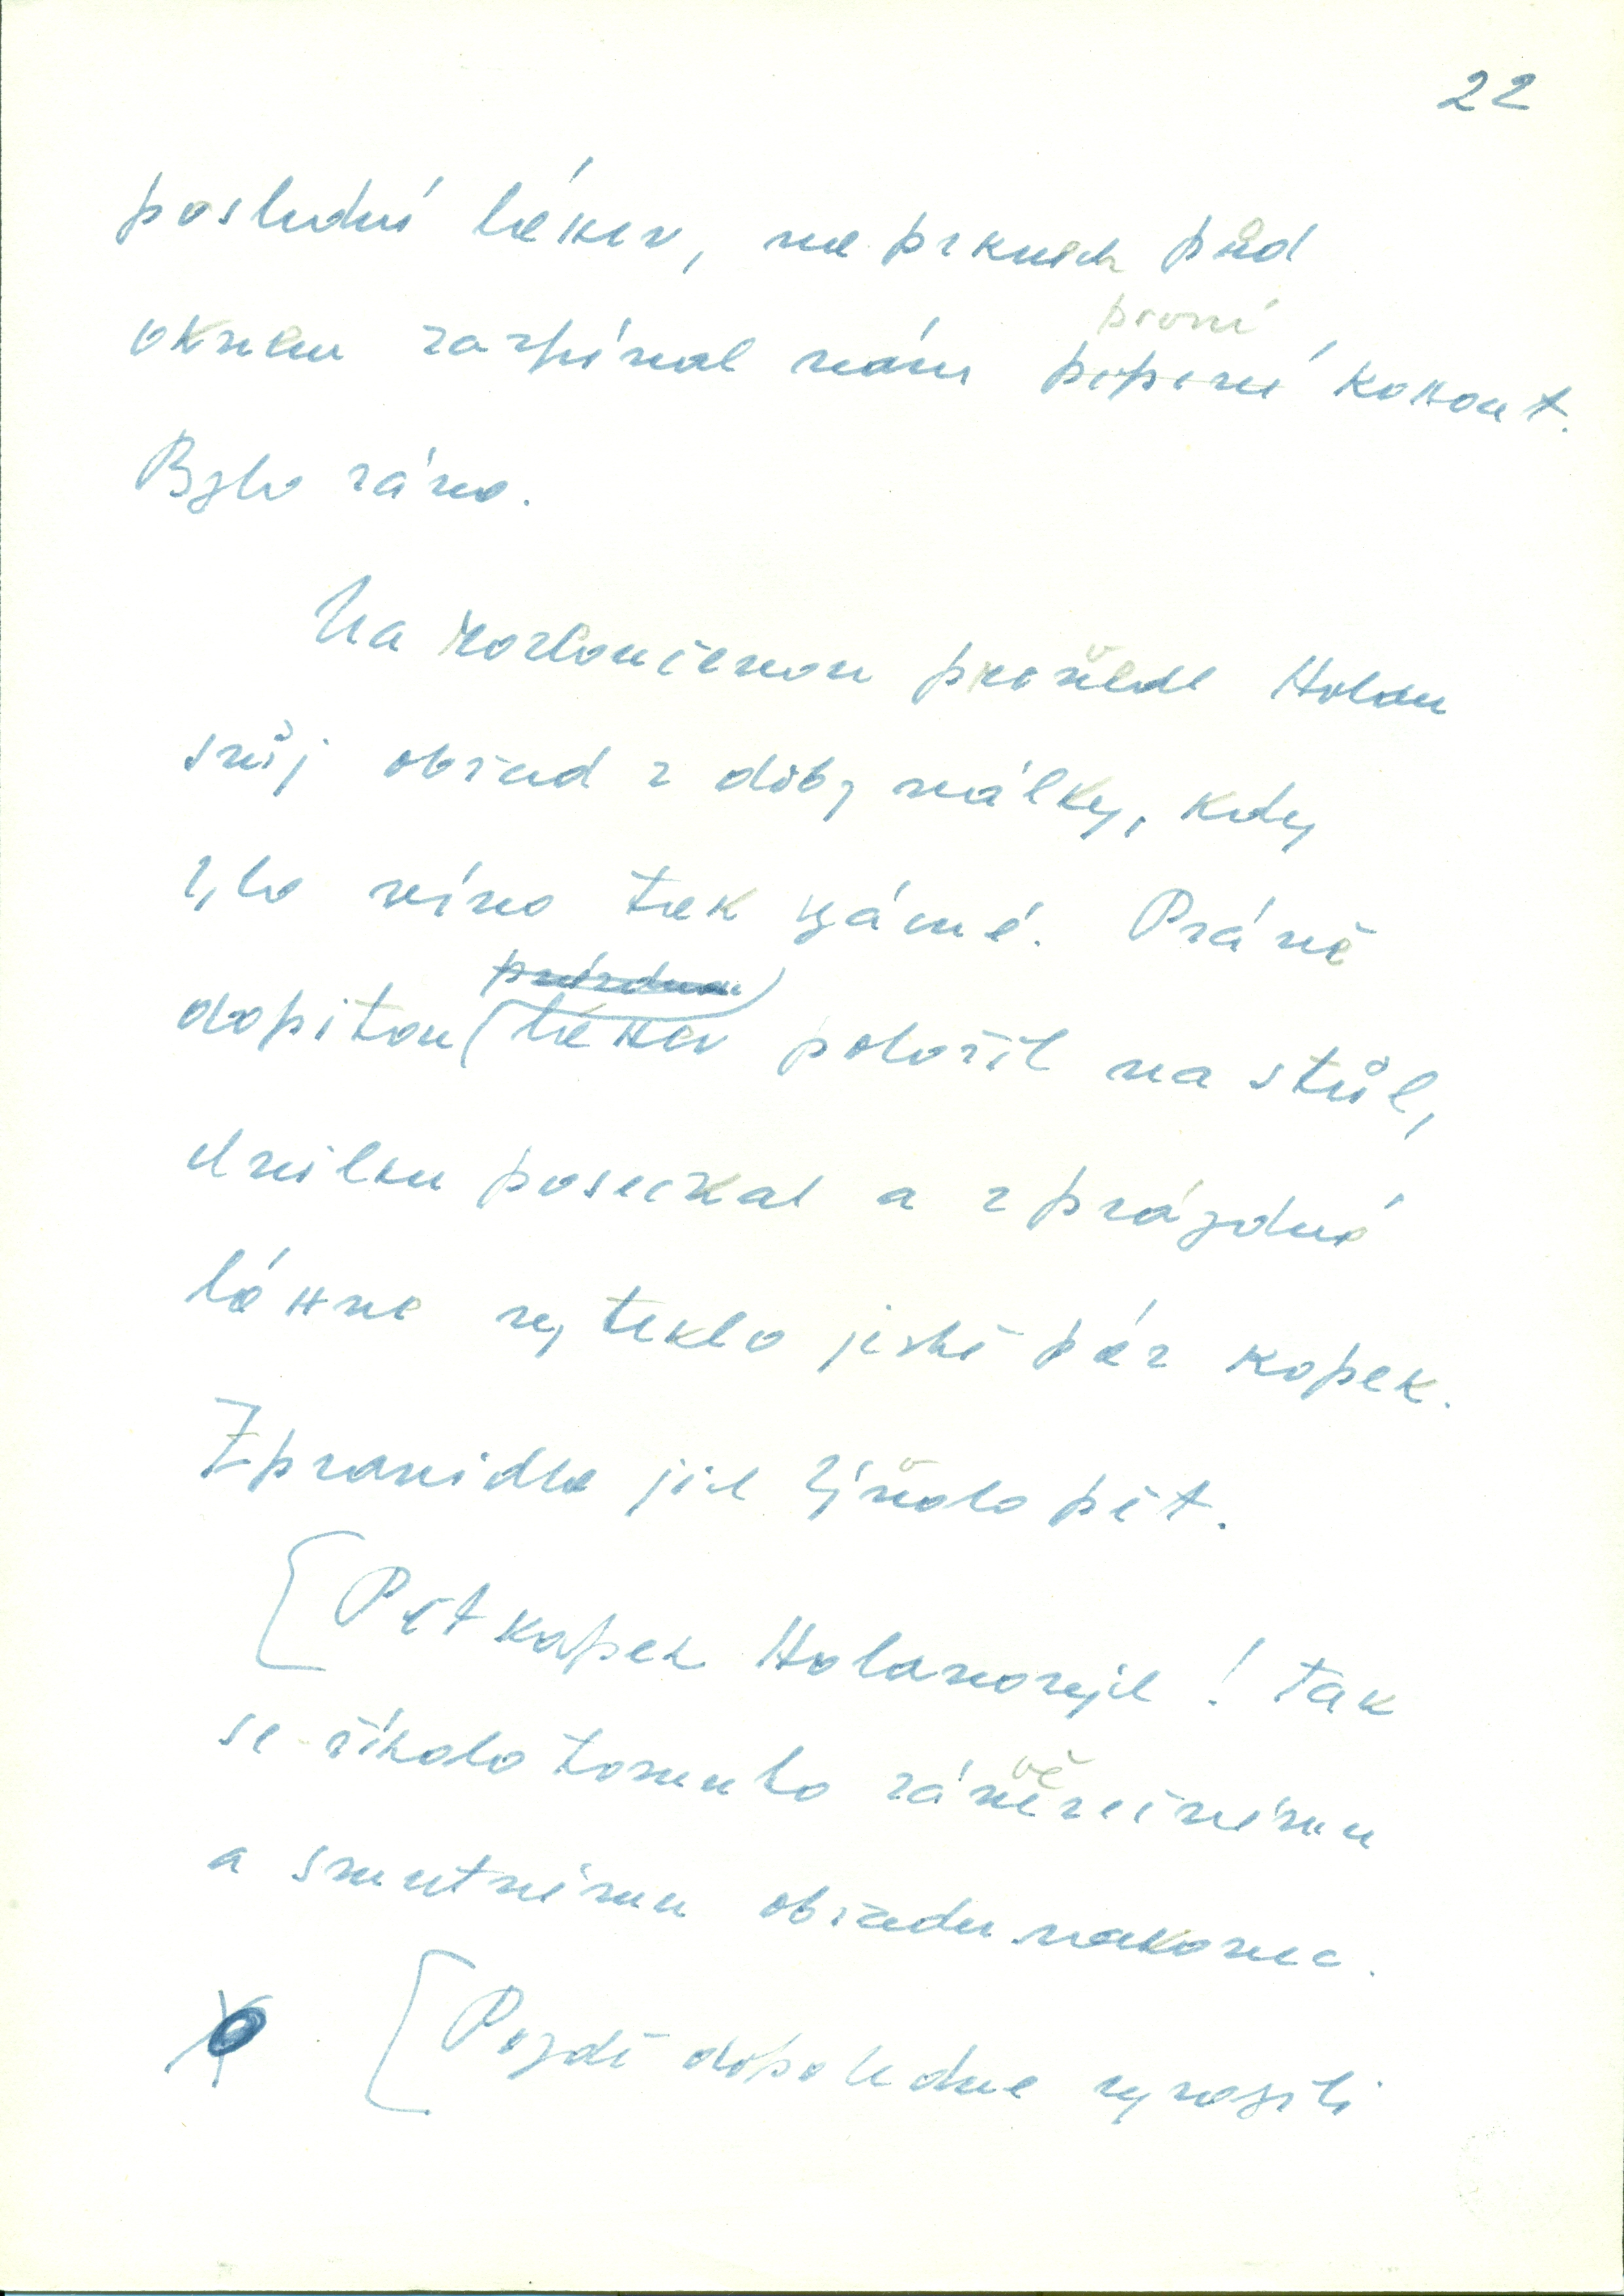 22
poslední láhev, na prknech před
oknem zazpíval nám první
pěpirní kohout.
Bylo ráno.
Na rozloučenou provedl Holan
svůj obřad z doby války, kdy
bylo víno tak vzácné. Právě
prázdnou
dopitou láhev položil na stůl,
chvilku posečkal a z prázdné
láhve vyteklo ještě pár kapek.
Zpravidla jich bývalo pět.
Pět kapek Holanových! Tak
se říkalo tomuto závěrečnému
a smutnému obřadu nakonec.
Pozdě dopoledne vyrazili